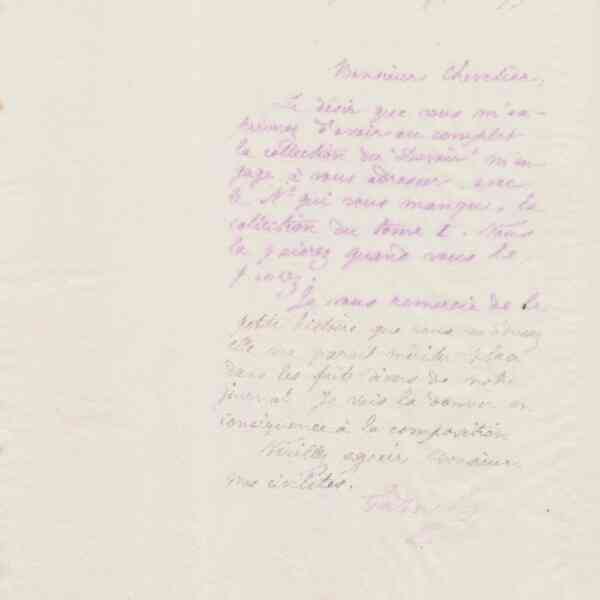 Monsieur Chevalier,
Le désir que vous m'ex-
primez d'avoir au complet
la collection du "Devoir" m'en-
gage à vous adresser avec
le N° qui vous manque, la
collection du tome I. Vous
la paierez quand vous le
pourrez.
Je vous remercie de la
petite histoire que vous m'envoyez
elle me parait mériter place
dans les faits divers de notre
journal. Je vais la donner en
conséquence à la composition
Veuillez agréer Monsieur,
mes civilités.